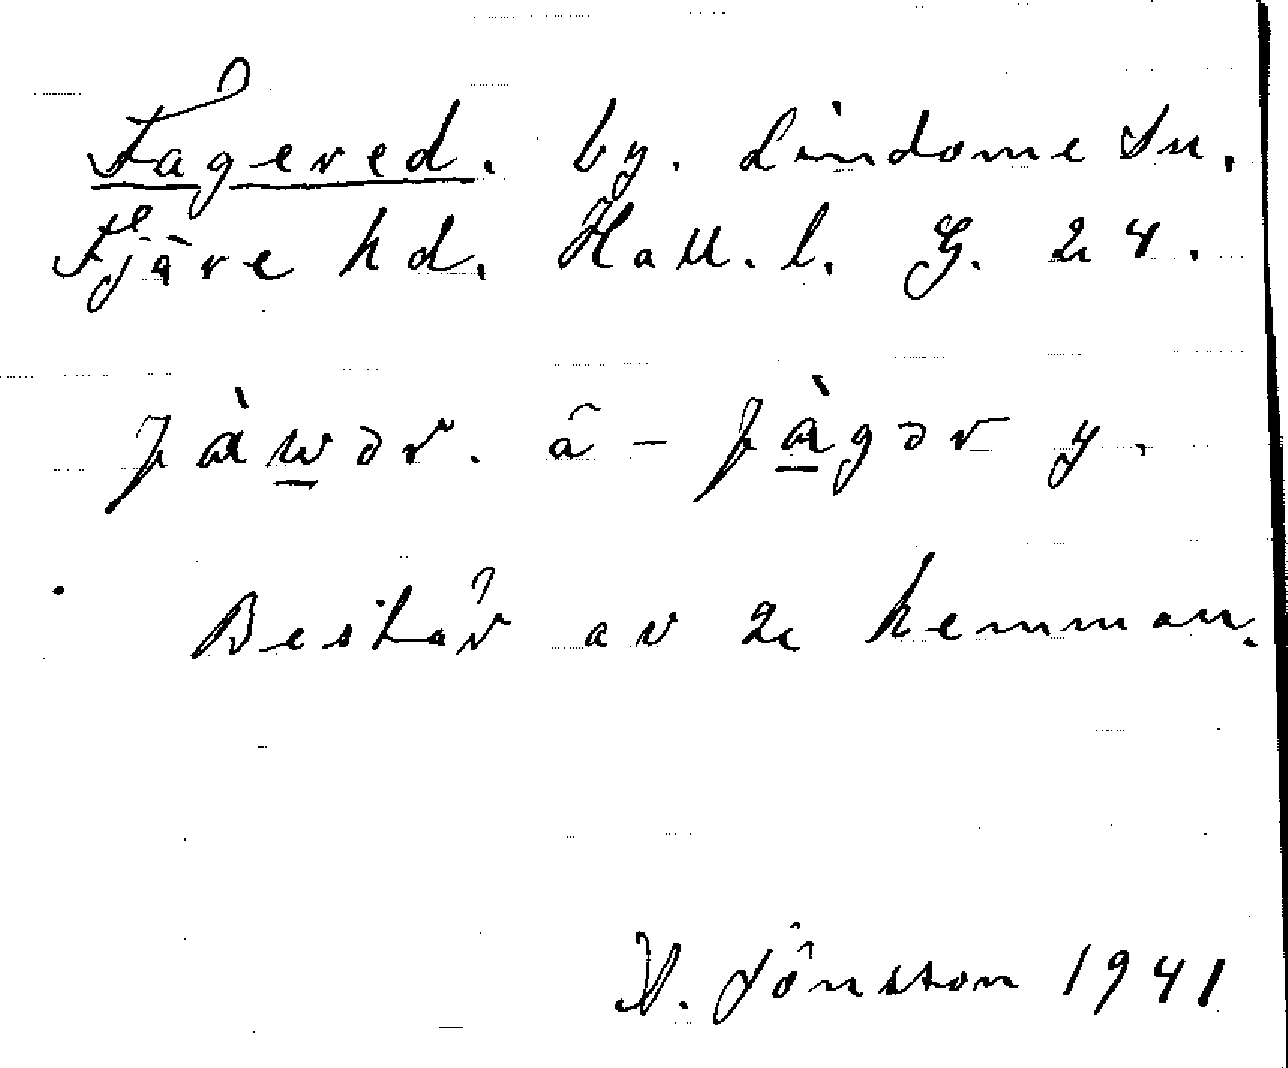 Fagered. by. Lindome Sn.
Fjäre hd. Hall. l. G. 24.
fàwər. ä – fàgər y.
Består av 2 hemman.
V. Jönsson 1941